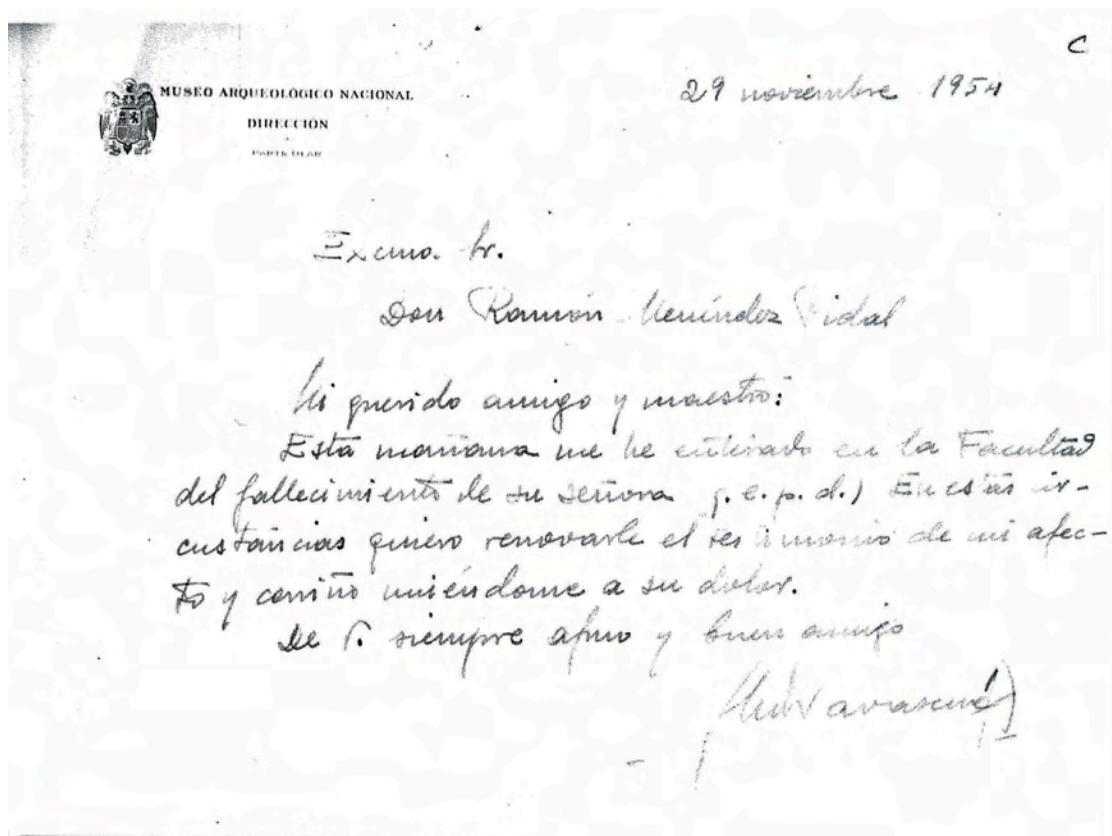 C
MUSEO ARQUEOLÓGICO NACIONAL
DIRECCIÓN
PARTICULAR
29 noviembre 1954
Excmo. Sr.
Don Ramón Menéndez Pidal
Mi querido amigo y maestro:
Esta mañana me he enterado en la Facultad
del fallecimiento de su señora q. e. p. d.) En estas cir-
custancias quiero renovarle el testimonio de mi afec-
to y cariño uniéndome a su dolor.
De V. siempre afmo y buen amigo